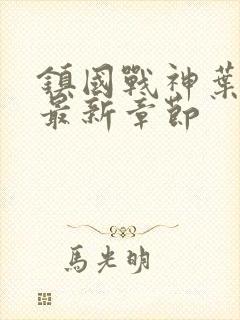 鎮國戰神葉
最新章節
馬光明